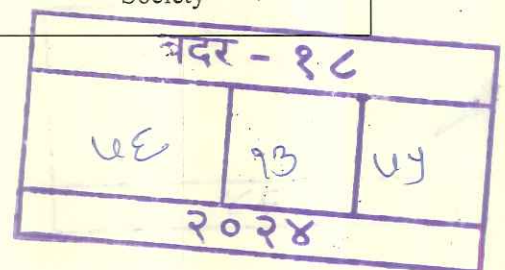 Society
बदर - १८
५६ १३ ५५
२०२४